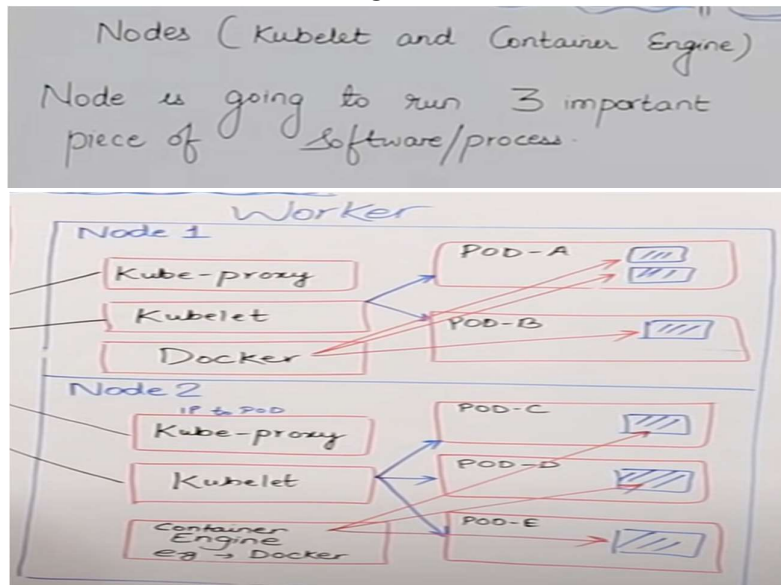 Nodes (Kubelet and Container Engine)
Node is going to run 3 important
piece of software/process.
Worker
Node 1
Kube-proxy
Kubelet
Docker
POD-A
POD-B
Node 2
IP to POD
Kube-proxy
Kubelet
Container
Engine
eg → Docker
POD-C
POD-D
POD-E